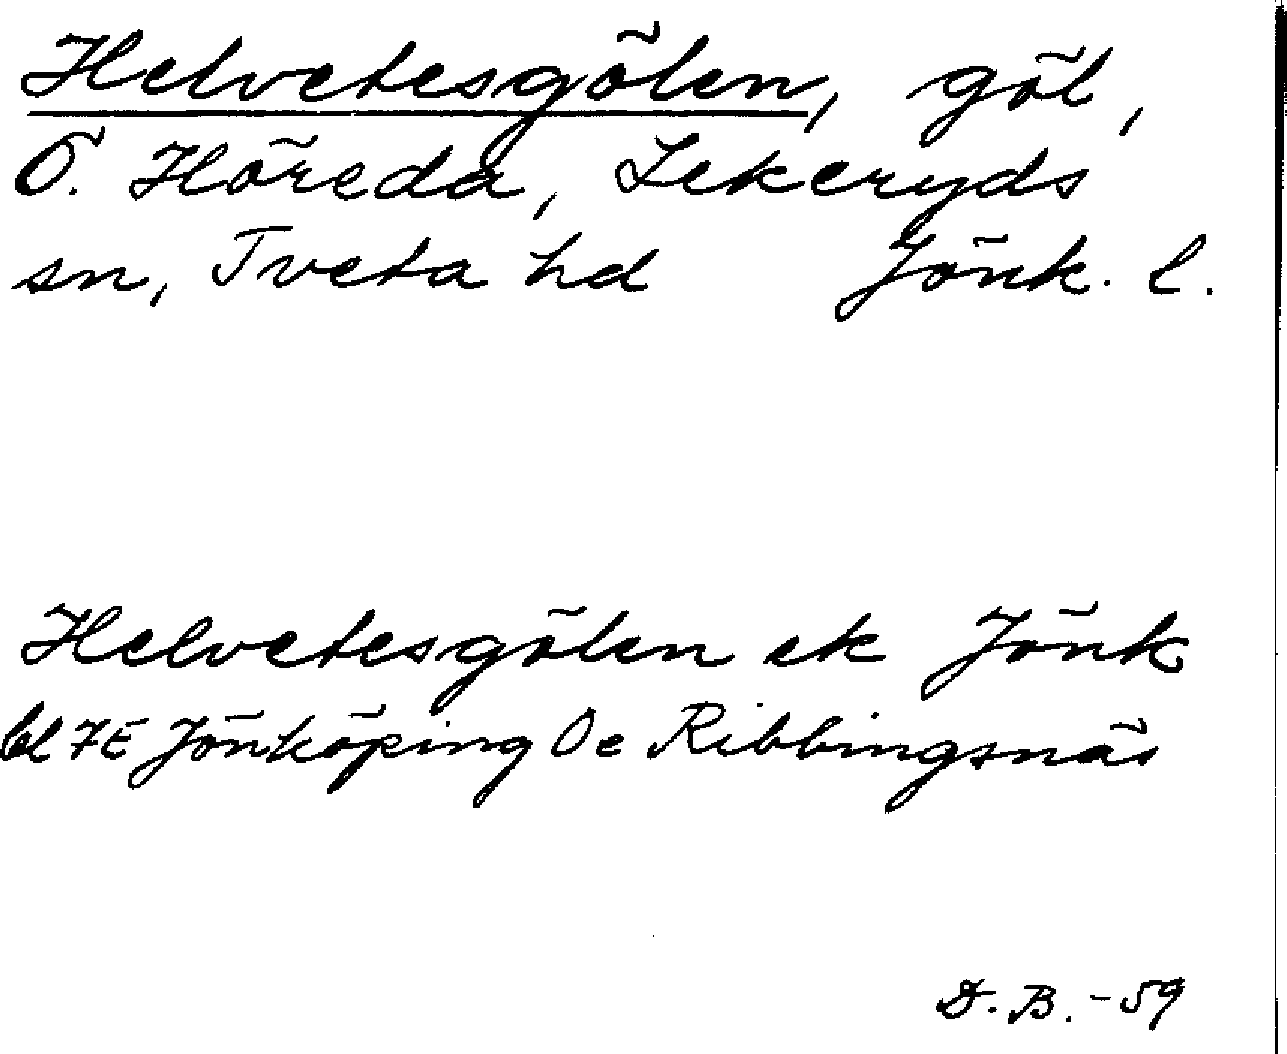 Helvetesgölen, göl,
Ö. Höreda, Lekeryds
sn, Tveta hd Jönk. l.
Helvetesgölen ek Jönk
bl 7E Jönköping 0e Ribbingsnäs
D. B. -59